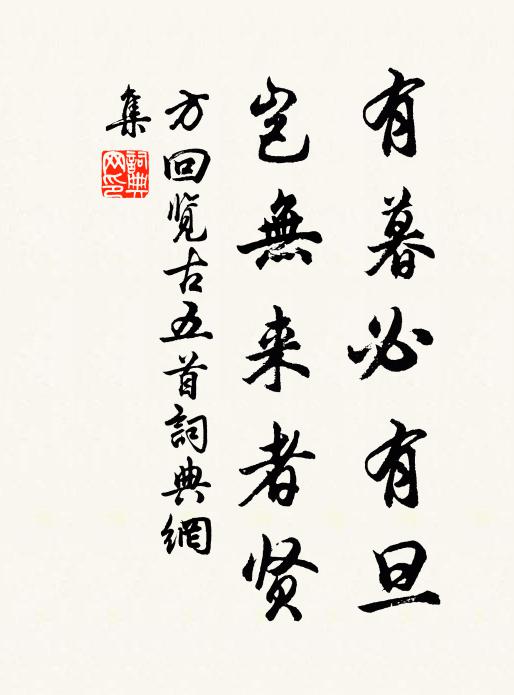 有暮必有旦
岂無来者贤
方回览古五首詞典網
集
詞典
网印